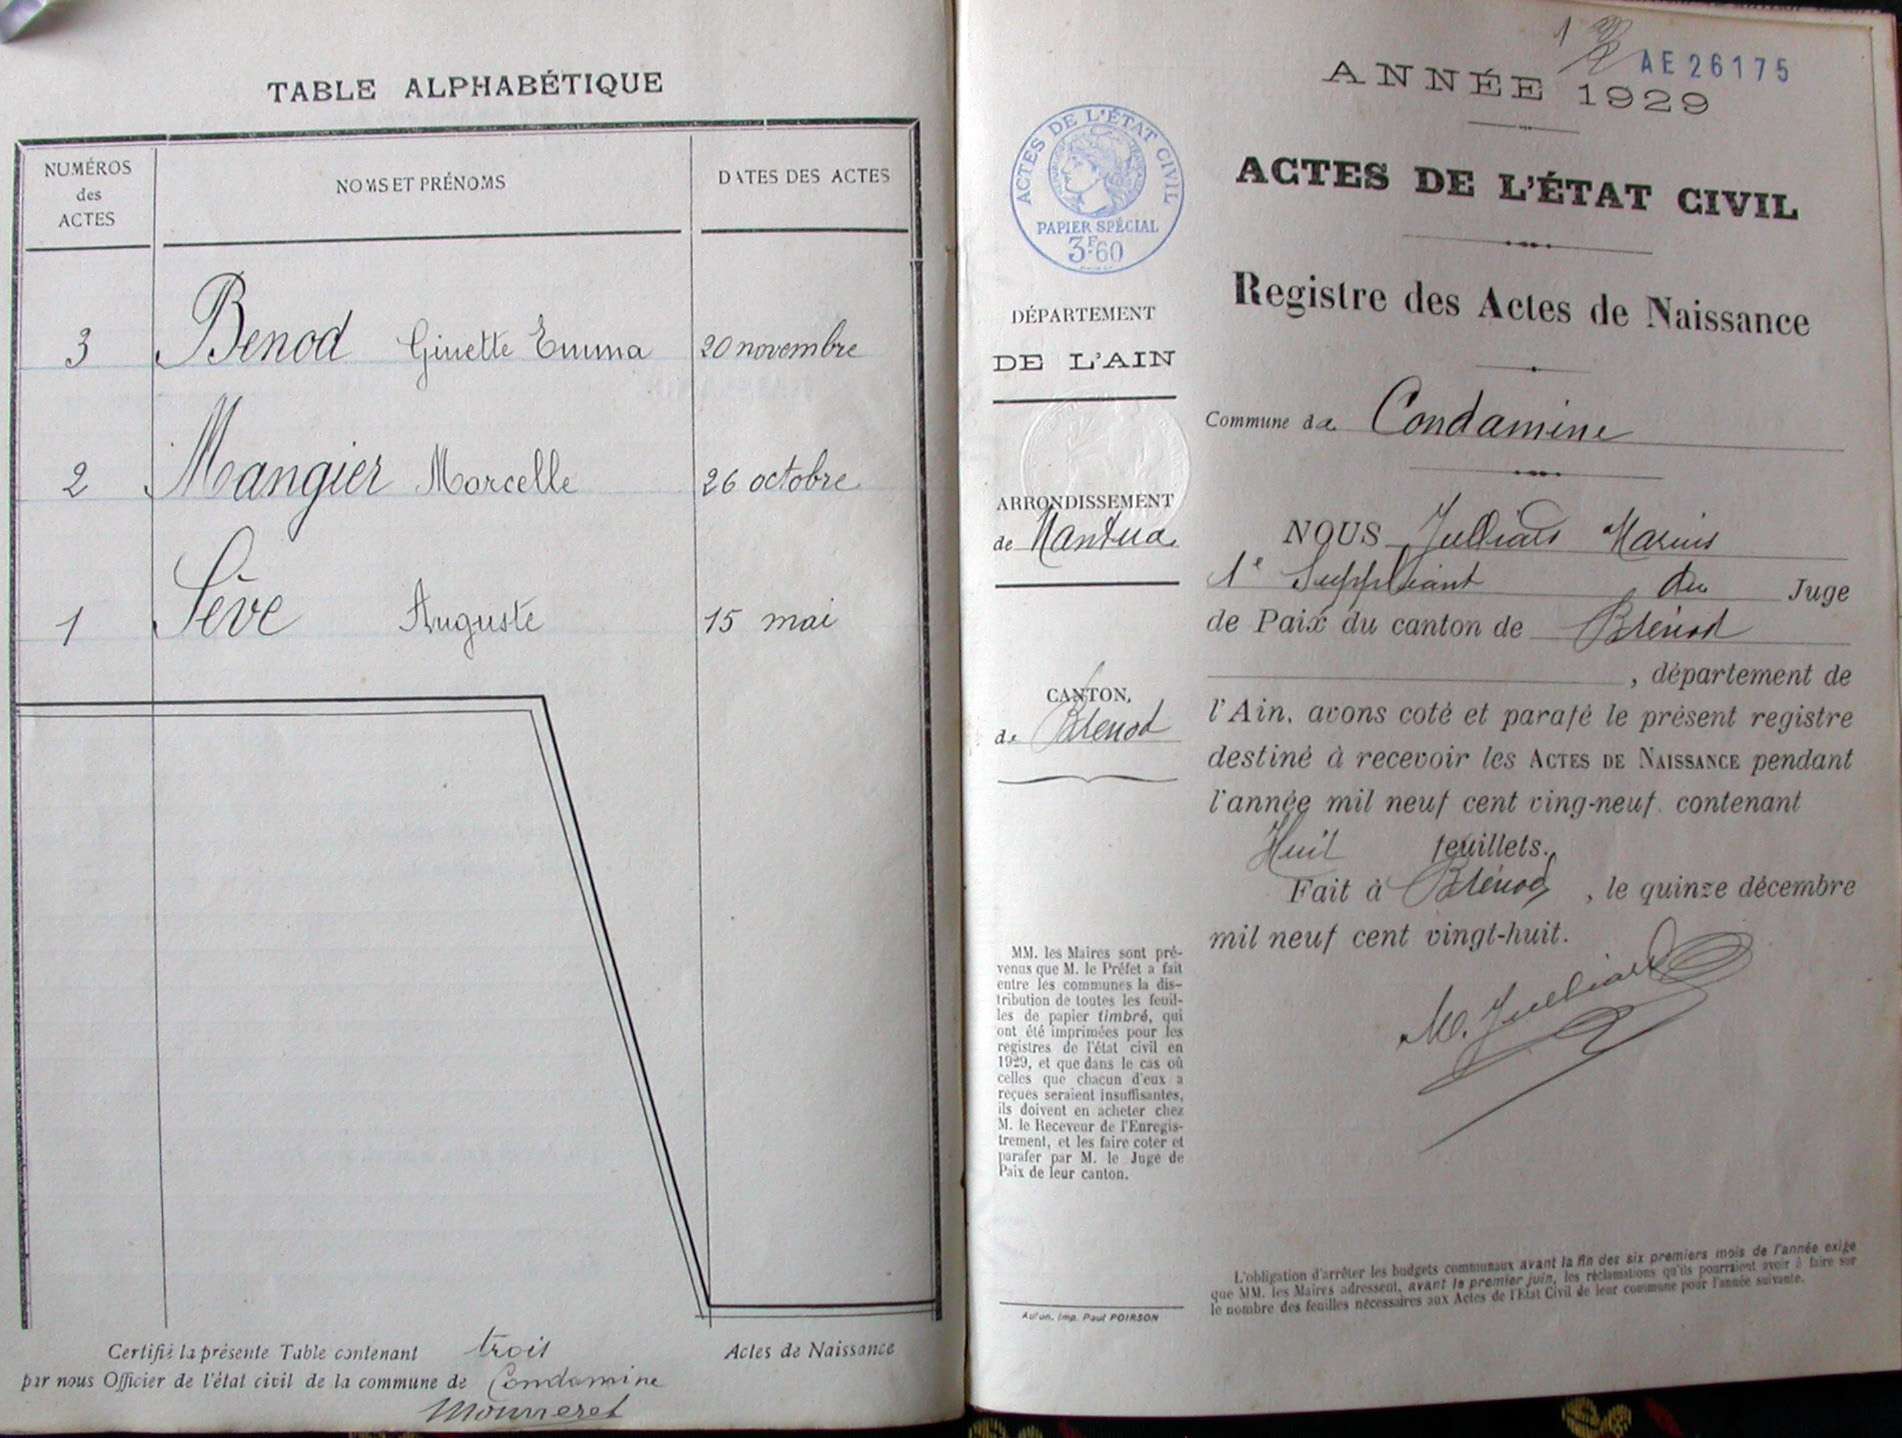 TABLE ALPHABÉTIQUE
NUMÉROS
des
ACTES
NOMS ET PRÉNOMS
DATES DES ACTES
3 Benod Ginette Emma 20 novembre
2 Mangier Marcelle 26 octobre
1 Sève Auguste 15 mai
Certifié la présente Table contenant trois Actes de Naissance
par nous Officier de l'état civil de la commune de Condamine
1
AE 26175
ANNÉE 1929
ACTES DE L'ÉTAT CIVIL
PAPIER SPÉCIAL
3F.60
DÉPARTEMENT
DE L'AIN
ARRONDISSEMENT
de Nantua
CANTON,
de Brénod
MM. les Maires sont pré-
venus que M. le Préfet a fait
entre les communes la dis-
tribution de toutes les feuil-
les de papier timbré, qui
ont été imprimées pour les
registres de l'état civil en
1929, et que dans le cas où
celles que chacun d'eux a
reçues seraient insuffisantes,
ils doivent en acheter chez
M. le Receveur de l'Enregis-
trement, et les faire coter et
parafer par M. le Juge de
Paix de leur canton.
Autun, Imp. Paul POIRSON
ACTES DE L'ÉTAT CIVIL
Registre des Actes de Naissance
Commune de Condamine
NOUS Julliard Marius
1e Suppléant du Juge
de Paix du canton de Brénod
, département de
l'Ain, avons coté et parafé le présent registre
destiné à recevoir les ACTES DE NAISSANCE pendant
l'année mil neuf cent ving-neuf. contenant
Huit feuillets.
Fait à Brénod, le quinze décembre
mil neuf cent vingt-huit.
M. Julliard
L'obligation d'arrêter les budgets communaux avant la fin des six premiers mois de l'année exige
que MM. les Maires adressent, avant le premier juin, les réclamations qu'ils pourraient avoir à faire sur
le nombre des feuilles nécessaires aux Actes de l'Etat Civil de leur commune pour l'année suivante.